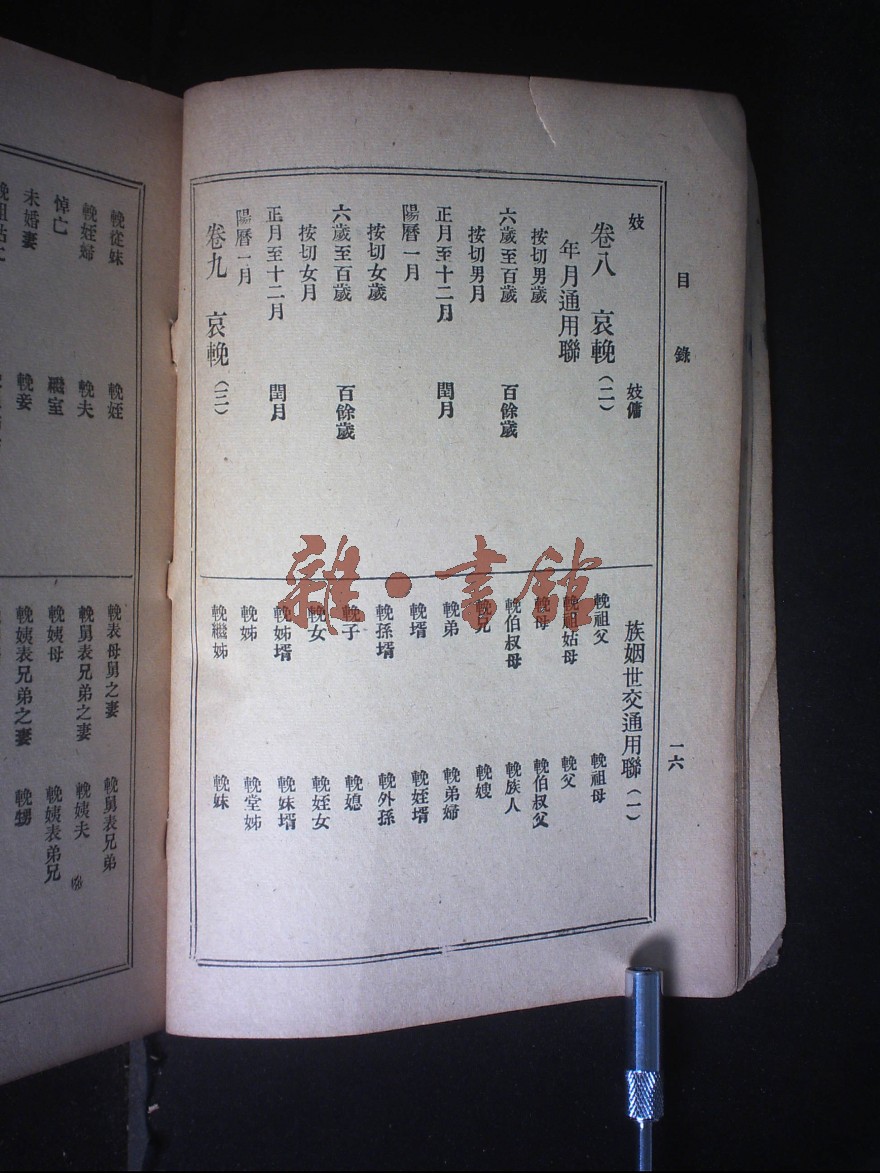 目錄
一六
妓　妓傭
卷八　哀輓（二）
年月通用聯
按切男歲
六歲至百歲　百餘歲
按切男月
正月至十二月　閏月
陽曆一月
按切女歲
六歲至百歲　百餘歲
按切女月
正月至十二月　閏月
陽曆一月
卷九　哀輓（三）
族姻世交通用聯（一）
輓祖父　輓祖母
輓祖姑母　輓父
輓母　輓伯叔父
輓伯叔母　輓族人
輓兄　輓嫂
輓弟　輓弟婦
輓壻　輓姪壻
輓孫壻　輓外孫
輓子　輓媳
輓女　輓姪女
輓姊壻　輓妹壻
輓姊　輓堂姊
輓繼姊　輓妹
雜·書館
輓從妹　輓姪
輓姪婦　輓夫
悼亡　繼室
未婚妻　輓妾
輓表母舅之妻　輓舅表兄弟
輓舅表兄弟之妻　輓姨夫
輓姨母　輓姨表弟兄
輓姨表兄弟之妻　輓甥